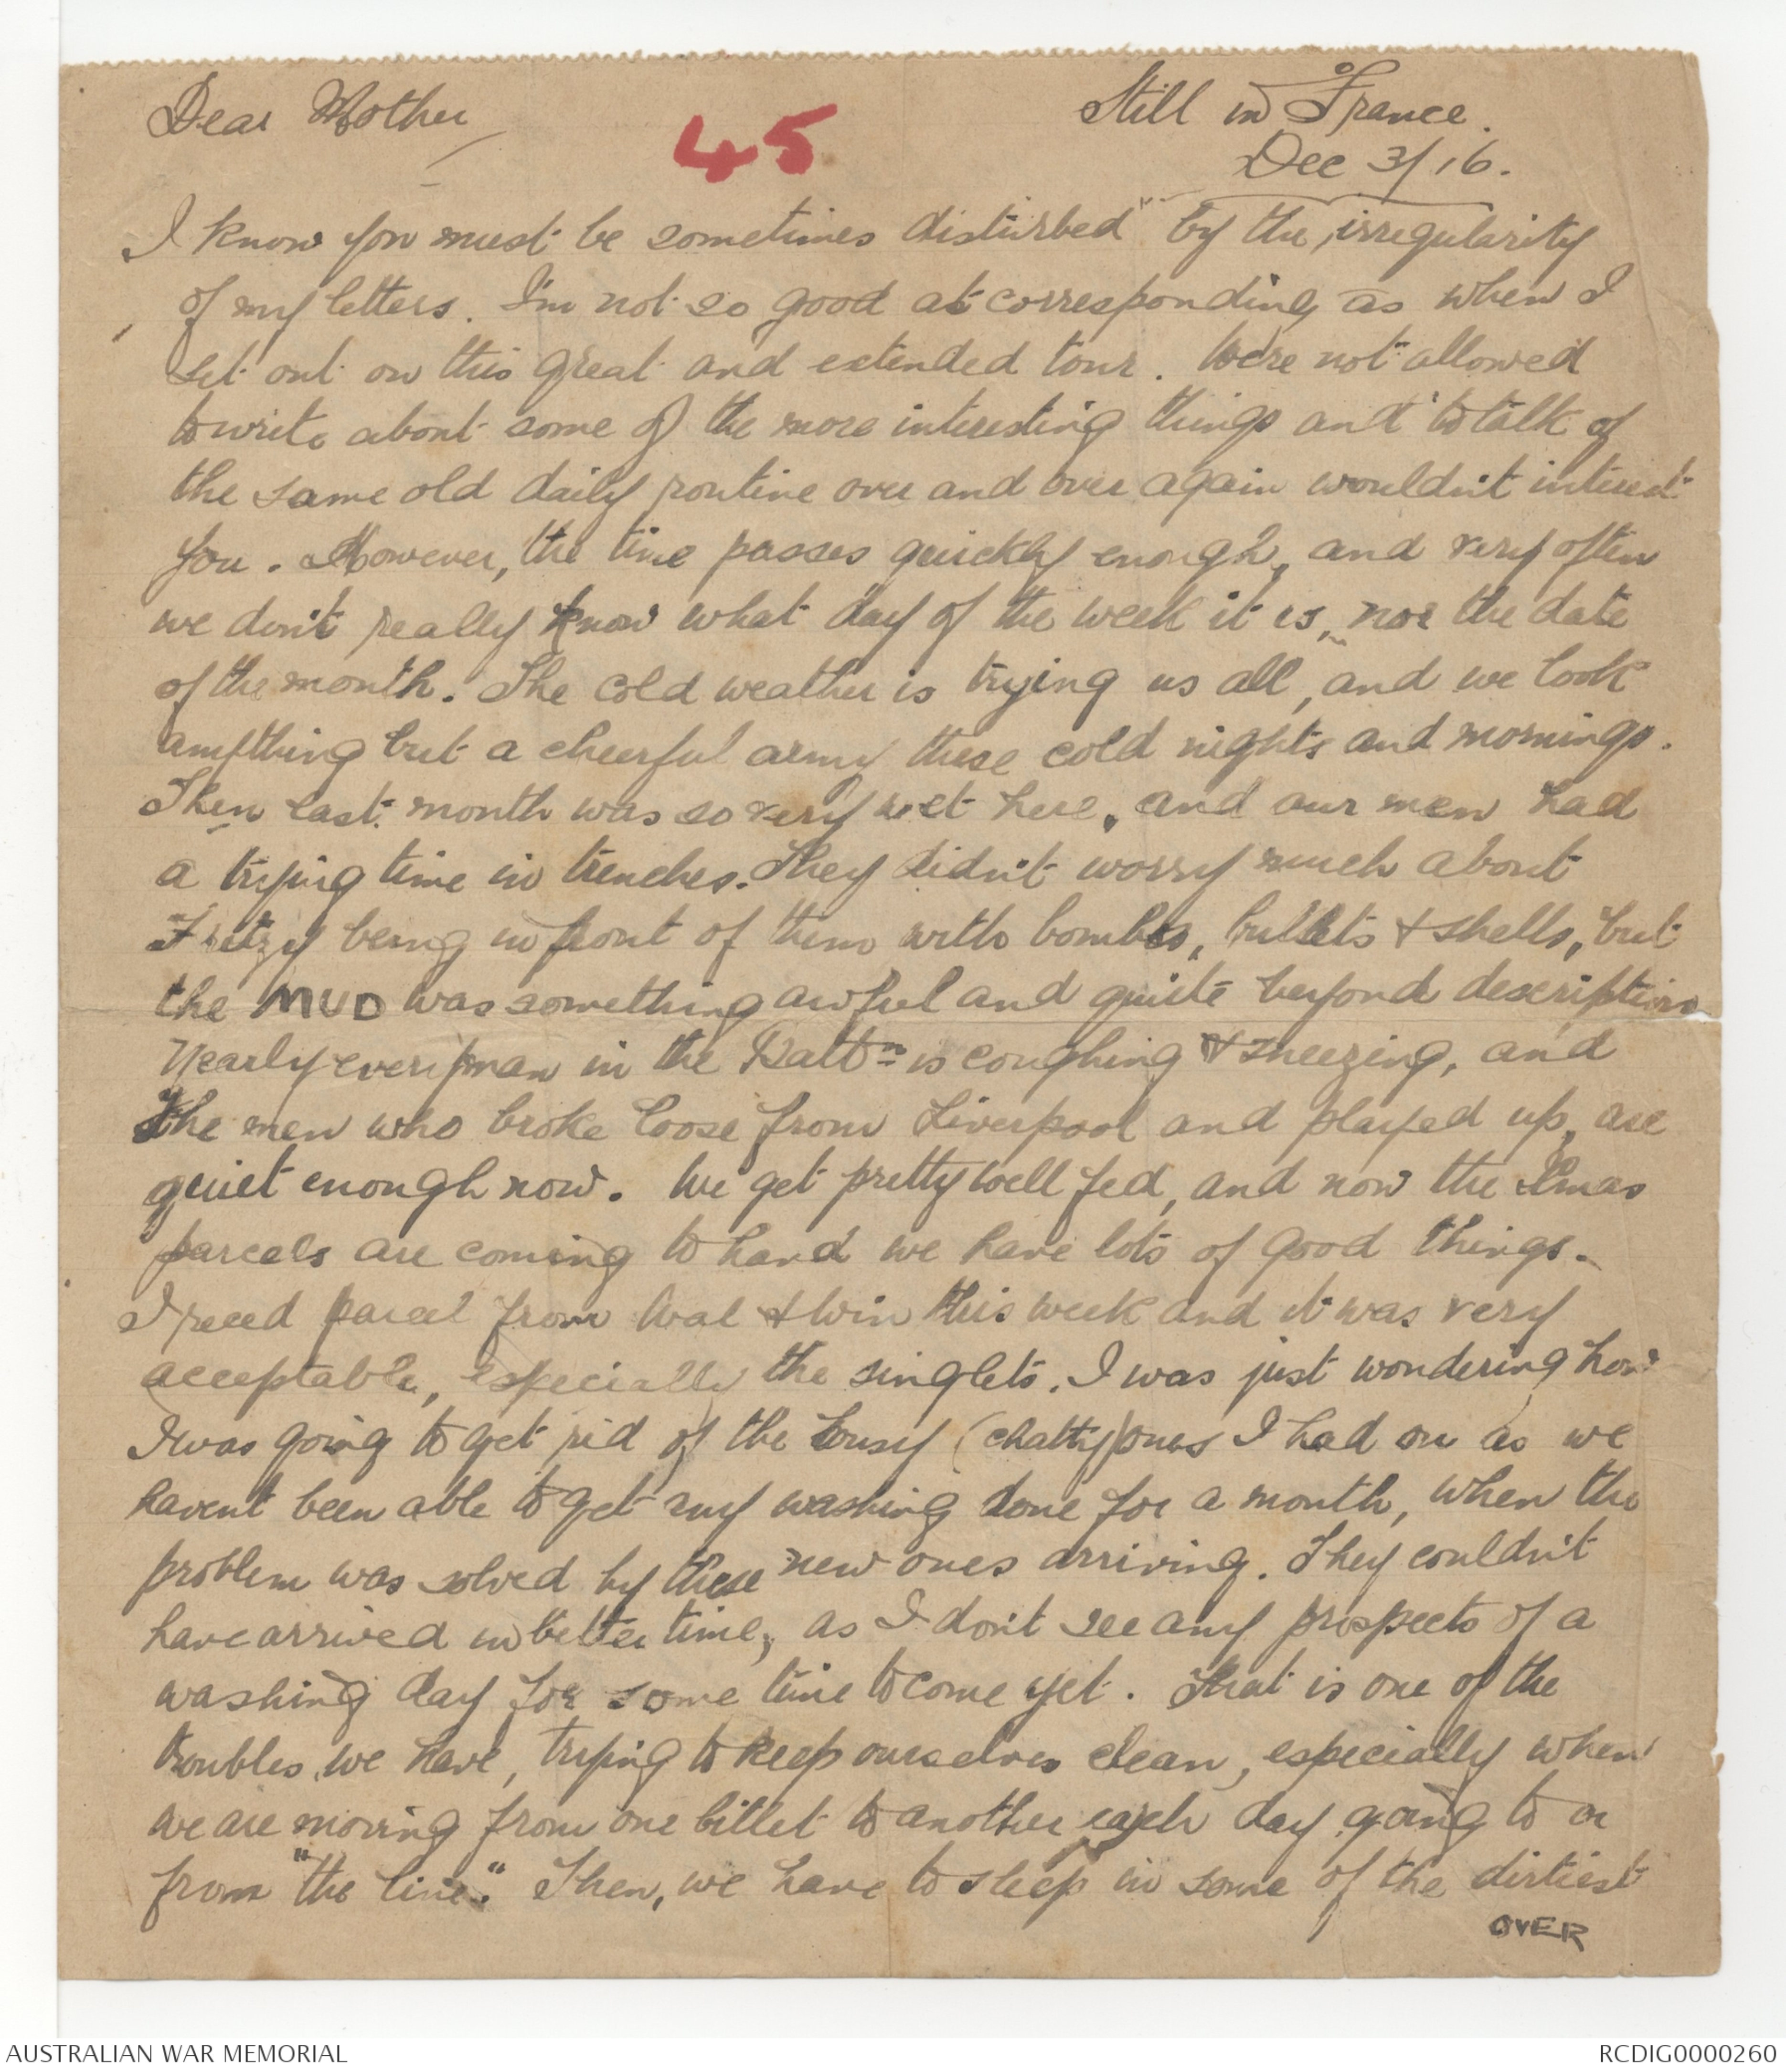 Dear Mother
45
Still in France.
Dec 3/16.
I know you must be sometimes disturbed by the irregularity
of my letters. I'm not so good at corresponding as when I
set out on this great and extended tour. We're not allowed
to write about some of the more interesting things and to talk of
the same old daily routine over and over again wouldn't interest
you. However, the time passes quickly enough, and very often
we don't really know what day of the week it is, nor the date
of the month. The cold weather is trying us all, and we look
anything but a cheerful army these cold nights and mornings.
Then last month was so very wet here, and our men had
a trying time in trenches. They didn't worry much about
Fritzy being in front of them with bombs, bullets & shells, but
the MUD was something awful and quite beyond description
Nearly every man in the Battn is coughing & sneezing, and
the men who broke loose from Liverpool and played up, are
quiet enough now. We get pretty well fed, and now the Xmas
parcels are coming to hand we have lots of good things.
I recd parcel from Wal & Win this week and it was very
acceptable, especially the singlets. I was just wondering how
I was going to get rid of the lousy (chatty) ones I had on as we
havent been able to get any washing done for a month, when the
problem was solved by these new ones arriving. They couldn't
have arrived in better time, as I don't see any prospects of a
washing day for some time to come yet. That is one of the
troubles we have, trying to keep ourselves clean, especially when
we are moving from one billet to another each day going to or
from "the line". Then, we have to sleep in some of the dirtiest
OVER
AUSTRALIAN WAR MEMORIAL
RCDIG0000260